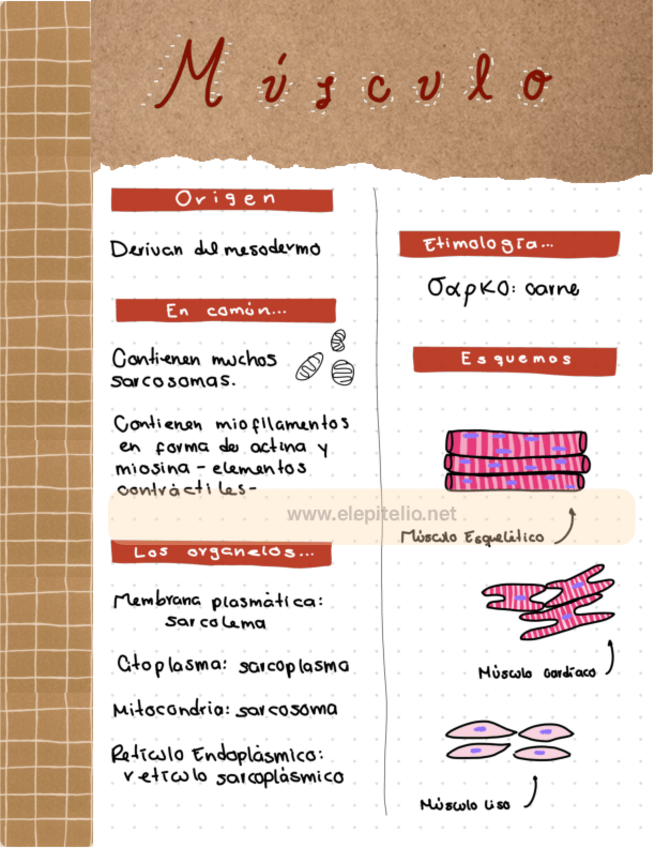 Músculo
Origen
Derivan del mesodermo
En común...
Contienen muchos
sarcosomas.
Contienen miofilamentos
en forma de actina y
miosina - elementos
contráctiles-
Los organelos...
Membrana plasmática:
sarcolema
Citoplasma: sarcoplasma
Mitocondria: sarcosoma
Retículo Endoplásmico:
retículo sarcoplásmico
Etimología...
σαρκο: carne
Esquemas
www.elepitelio.net
Músculo Esquelético
Músculo cardíaco
Músculo liso